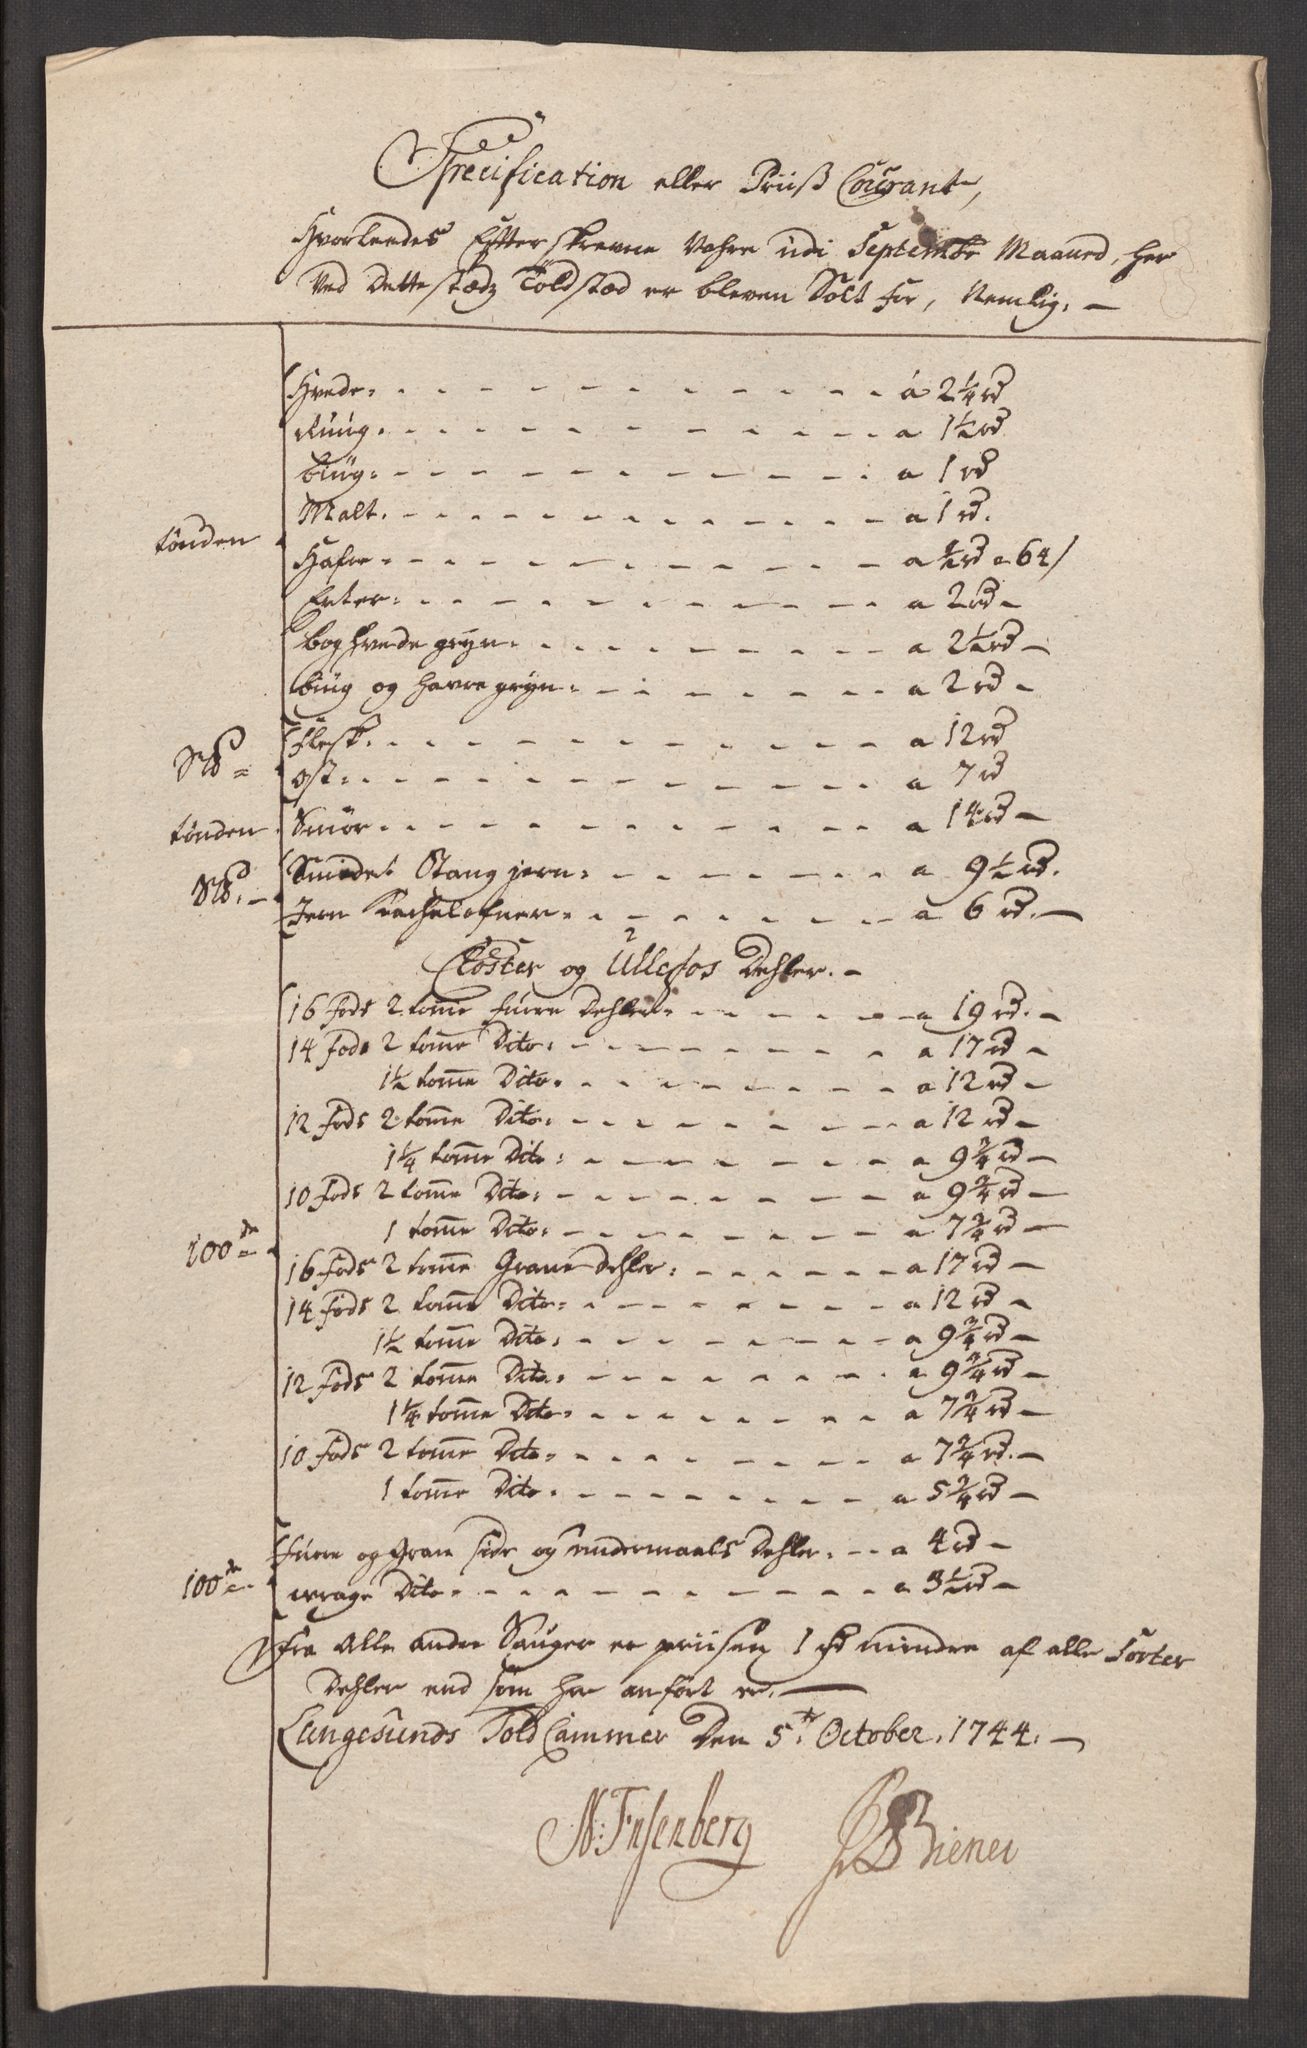 Specification eller Priiß Courant,
Hvorleedes Efterskrevne Vahre udi Septembr Maaned, her
Ved Dette stædz Toldstæd er bleven Solt for, Nemlig. —
Hvede - á 2¼ rd
Rüug - a 1½ rd
biüg - a 1 rd
Malt - a 1 rd.
tönden
Hafre - a ½ rd a 64 /
Erter - a 2 rd —
boghvede gryn - a 2½ rd —
biüg og havre gryn - a 2 rd —
Flesk - a 12 rd
Slb
ost - a 7 rd
tönden Smör - a 14 rd —
Smidet Stang jern - a 9½ rd.
Slb.
Jern Kachelofner - a 6 rd. —
Closter og Ullefos Dehler. —
16 fods 2 tome füure Dehler - a 19 rd. —
14 fods 2 tome Dito - a 17 rd —
1½ tome Dito - a 12 rd —
12 fods 2 tome Dito - a 12 rd —
1¼ tome Dito - a 9¾ rd —
10 fods 2 tome Dito - a 9¾ rd —
1 tome Dito - a 7¾ rd —
100de
16 fods 2 tome Grane Dehler - a 17 rd —
14 fods 2 tome Dito - a 12 rd —
1½ tome Dito - a 9¾ rd —
12 fods 2 tome Dito - a 9¾ rd —
1¼ tome Dito - a 7¾ rd —
10 fods 2 tome Dito - a 7¾ rd. —
1 tome Dito - a 5¾ rd —
Füure og Gran side og undermaals Dehler - a 4 rd —
100de
wrage Dito - a 3½ rd —
Fra Alle andre Sauger er priisen 1 rd mindre af alle Sorter
Dehler end som her anfört er. —
Langesunds Told Cammer Den 5te October. 1744. —
N: Ensenberg Biener